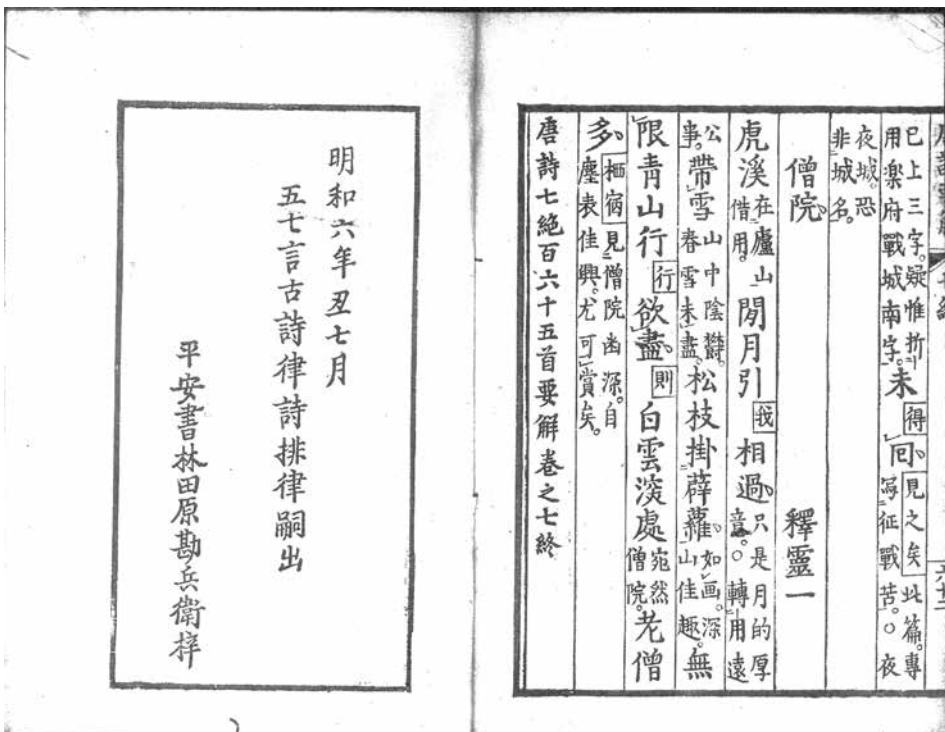 已上三字。疑惟折用楽府戰城南字。未得囘見之矣此篇。專寫征戰苦。○夜
夜城。恐非城名。
僧院 釋靈一
虎溪在廬山借用。閒月引我相過只是月的厚意。○轉用遠
公事。帶雪山中陰欝。春雪未盡。松枝掛薜蘿如画。深山佳趣。無
限青山行行欲盡則白雲深處宛然僧院。老僧
多栖宿見僧院幽深。自塵表佳興。尤可賞矣。
唐詩七絶百六十五首要解卷之七終
明和六年丑七月
五七言古詩律詩排律嗣出
平安書林田原勘兵衛梓